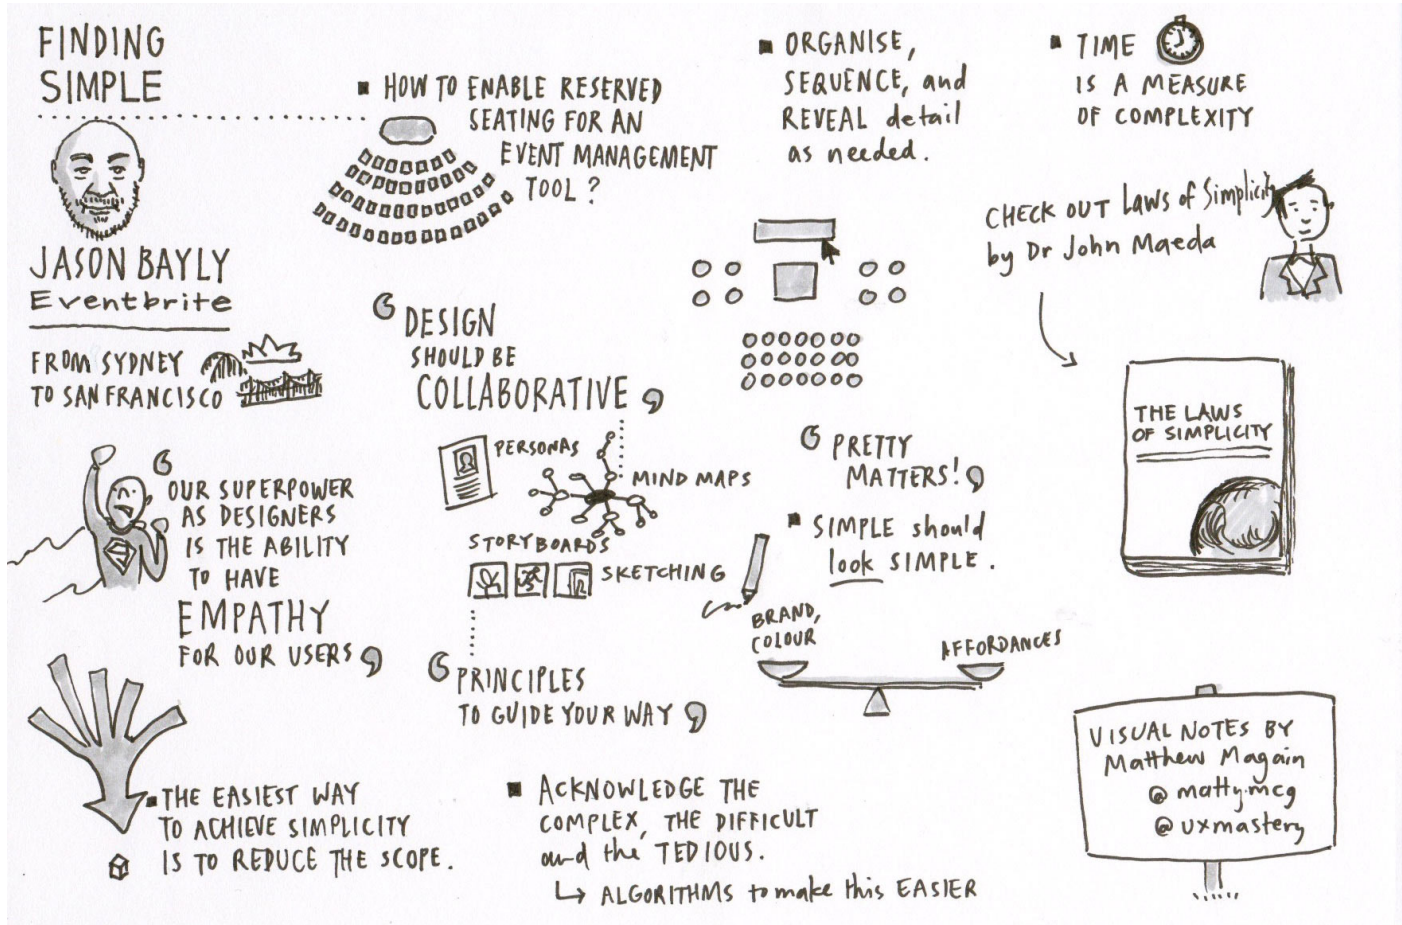 FINDING
SIMPLE
JASON BAYLY
Eventbrite
FROM SYDNEY
TO SAN FRANCISCO
OUR SUPERPOWER
AS DESIGNERS
IS THE ABILITY
TO HAVE
EMPATHY
FOR OUR USERS
THE EASIEST WAY
TO ACHIEVE SIMPLICITY
IS TO REDUCE THE SCOPE.
HOW TO ENABLE RESERVED
SEATING FOR AN
EVENT MANAGEMENT
TOOL?
DESIGN
SHOULD BE
COLLABORATIVE
PERSONAS
MIND MAPS
STORYBOARDS
SKETCHING
PRINCIPLES
TO GUIDE YOUR WAY
ACKNOWLEDGE THE
COMPLEX, THE DIFFICULT
and the TEDIOUS.
↳ ALGORITHMS to make this EASIER
ORGANISE,
SEQUENCE, and
REVEAL detail
as needed.
PRETTY
MATTERS!
SIMPLE should
look SIMPLE.
BRAND,
COLOUR
AFFORDANCES
TIME
IS A MEASURE
OF COMPLEXITY
CHECK OUT Laws of Simplicity
by Dr John Maeda
THE LAWS
OF SIMPLICITY
VISUAL NOTES BY
Matthew Magain
@mattymcg
@uxmastery